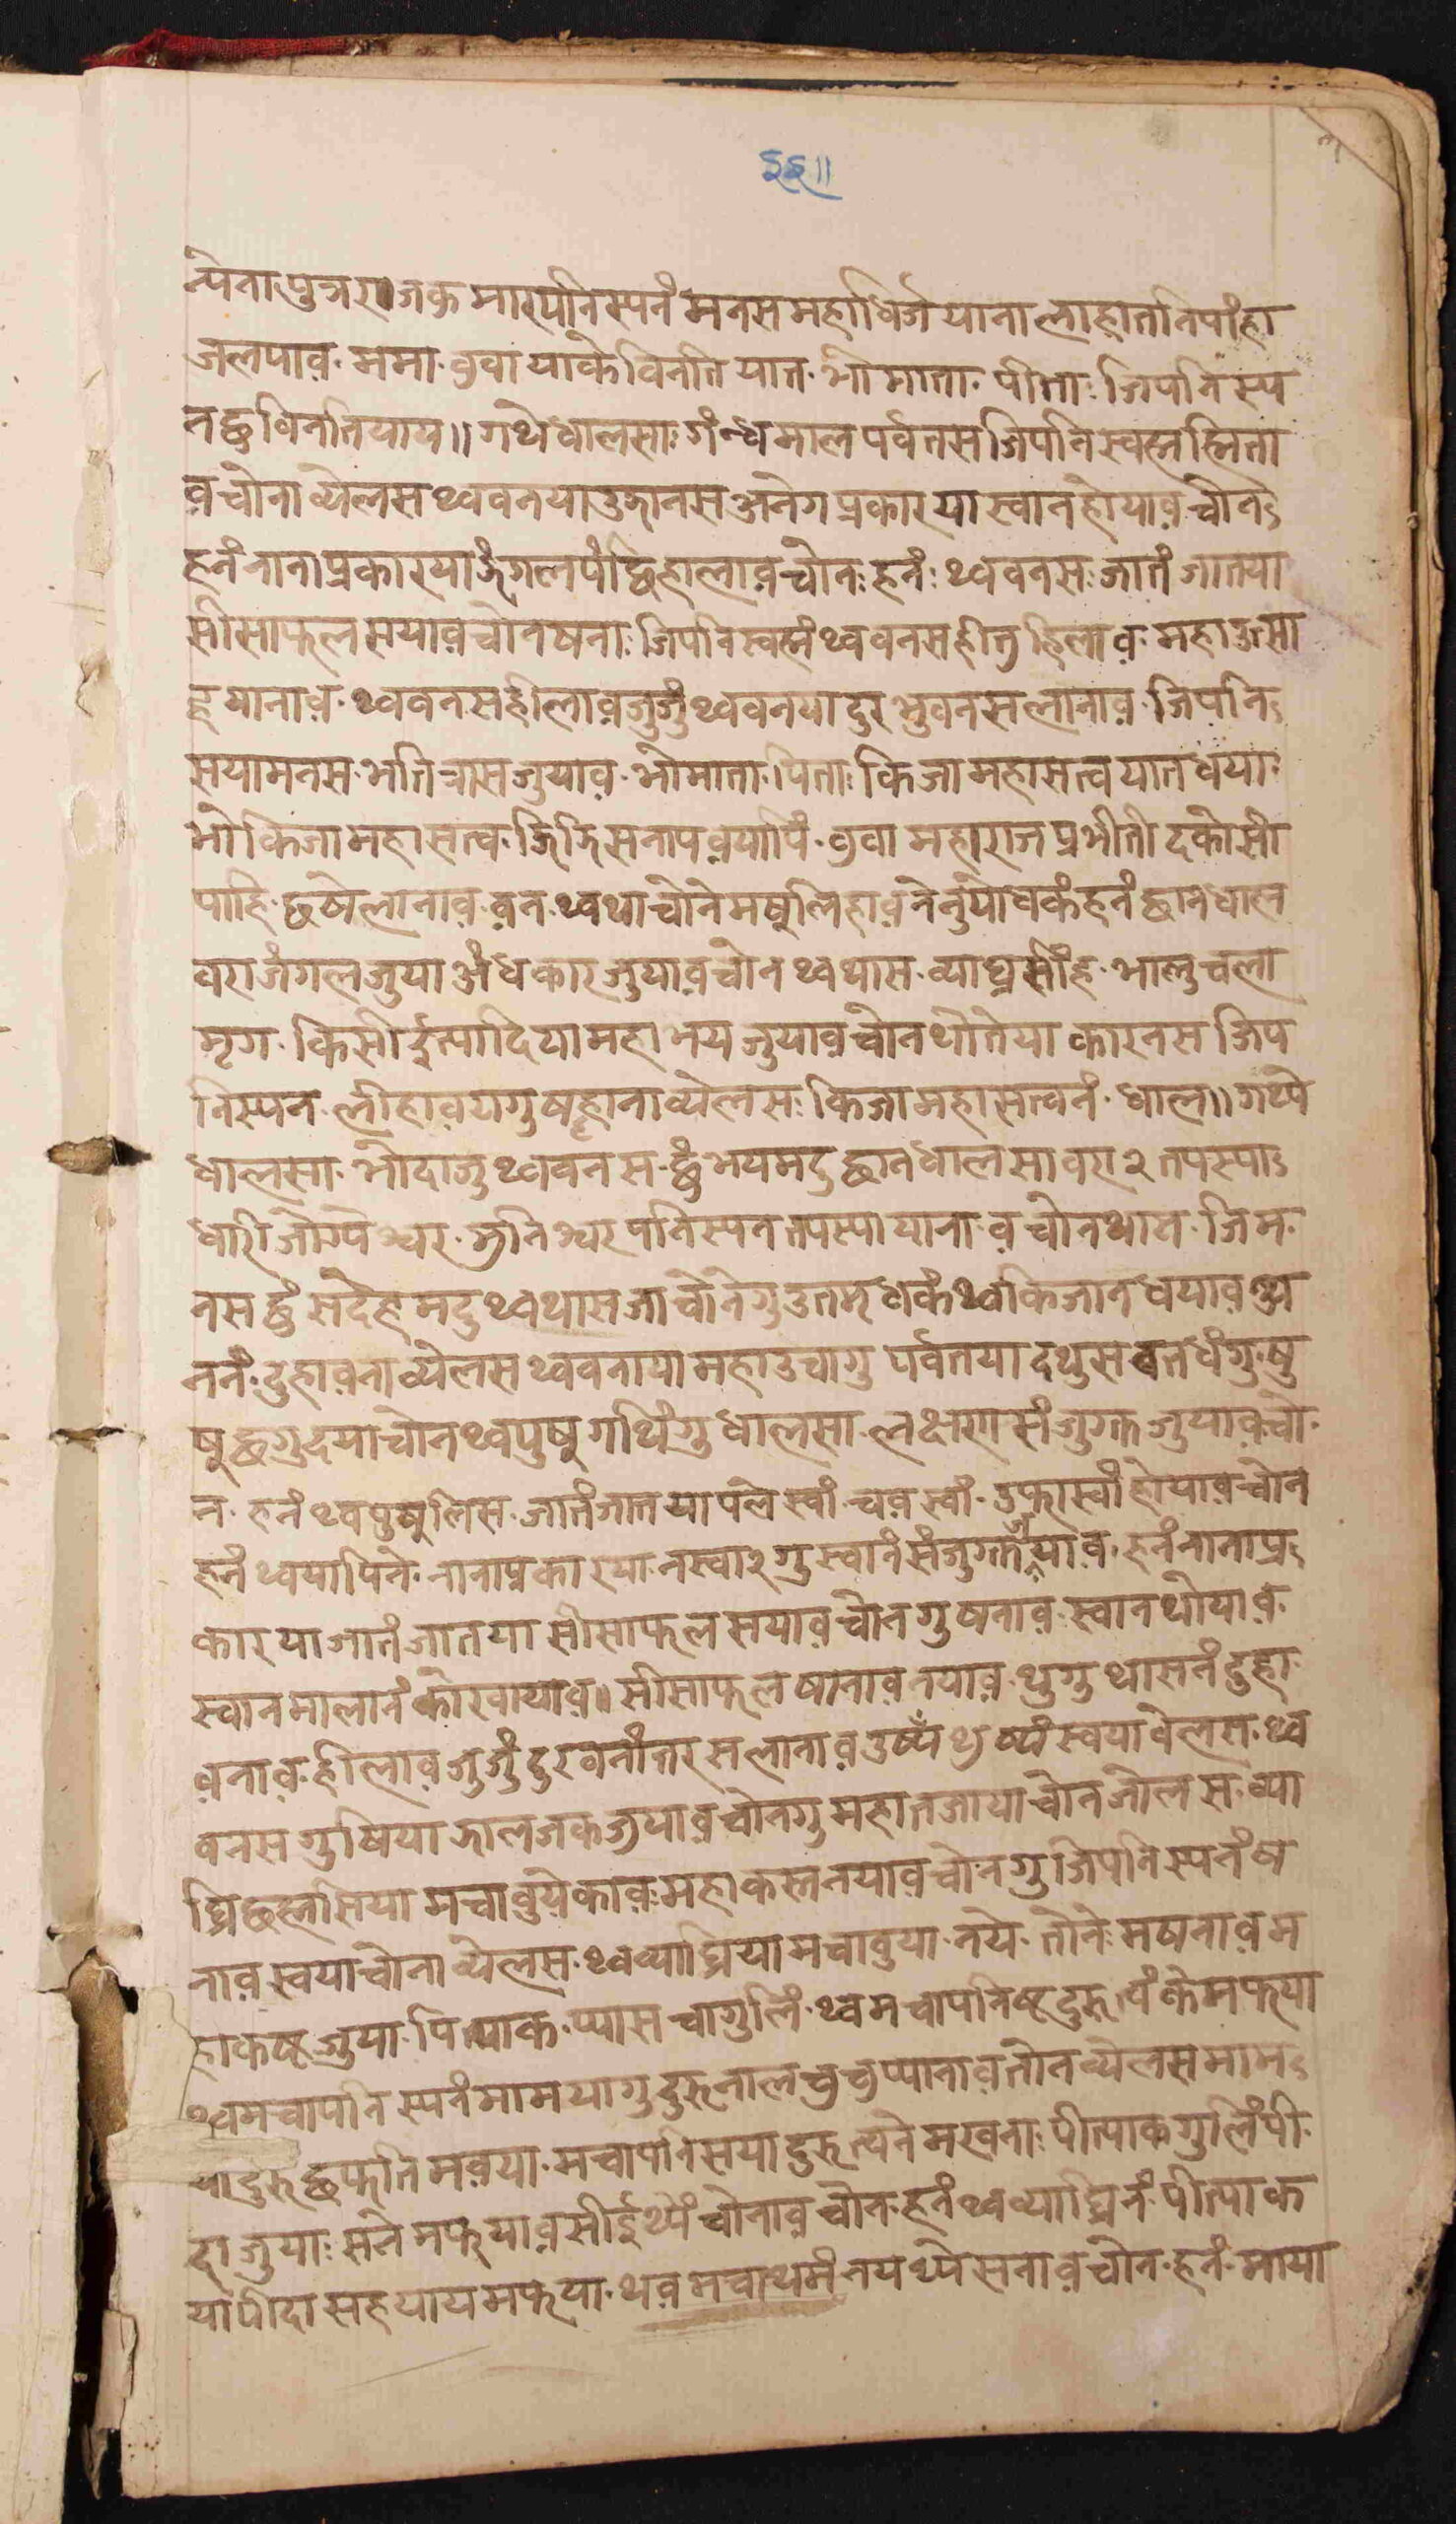 ३३॥
न्पेनापुत्रराजकुमारपनिस्पनं मनस महाधिर्जयाना ल्हाहातनिपांहा
जलपाव. ममा. बुवा याके विनतियात. भो माता. पीता: जिपनिस्प
नछु विनतियाय॥ गथे धालसा: गंन्धमाल पर्वतस जिपनि स्वह्मह्मिता
व चोना व्येलस थ्ववनया उद्यानस अनेग प्रकारया स्वान होयाव चोन
हनं नाना प्रकारया जंगलपंछि हालाव चोन: हनं: थ्ववनस: जातं जातया
सीसाफल सयाव चोन षना: जिपनि स्वह्मं थ्ववनस ह्मीतु हिलाव. महा उसा
ह्र यानाव. थ्ववनस हीलाव जुजुं थ्ववनया दुर भुवनस लानाव. जिपनि
सया मनस. भति त्रास जुयाव. भो माता. पिता: किजा महासत्वयात धया:
भो किजा महासत्व. झिझिसनाप वयापिं. बुवा महाराज प्रभीती दकोसी
पाहि. छषेलानाव. वन. थ्वथा चोने मषु लिहा वनेनुयो धकं हनं छान धाल
वरा जंगल जुया अंधकार जुयाव चोन थ्वथास. व्याघ्र सींह. भालु चला
मृग. किसी ईत्यादिया महाभय जुयाव चोन थोतेया कारनस जिप
निस्पन. लीहावयगु षह्लाना व्येलस: किजा महासत्वनं. धाल॥ गथ्ये
धालसा. भो दाजु थ्ववनस. छुं भय मदु छान धालसा वरा २ तपस्या
धारी जोग्येश्वर. मुनिश्वरपनिस्पन तपस्या याना. व चोन थास. जिम.
नस छुं संदेह मदु थ्वथास जा चोनेगु उतम धकं थ्वकिजान धयाव थ्व
ननं. दुहावना व्येलस थ्ववनाया महाउचागु पर्वतया दथुस वन धंगु. षु
षू छगु दया चोन थ्वपुषु गथिंगु धालसा. लक्षण संजुग्त जुयाव चो.
न. हनं थ्वपुषुलिस. जातं जातया पले स्वां. चव स्वां. उफो स्वां होयाव चोन
हनं थ्वयापिने. नाना प्रकारया. नस्वा २ गु स्वानं संजुग्त जुयाव. हनं नाना प्र
कारया जातं जातया सीसाफल सयाव चोन गु षनाव. स्वान थोयाव.
स्वानमालानं कोखायाव॥ सीसाफल षानाव नयाव. थुगु थासनं दुहा
वनाव. हीलाव जुजुं दुर वनांतरस लानाव उष्यं थुष्यं स्वया वेलस. थ्व
वनस गुषिया झाल जक जुयाव चोनगु महा तजाया चोन जोलस. व्या
घ्रि छह्मसिया मचा बुयेकाव: महाकस्त नयाव चोनगु जिपनिस्पनं ष
नाव स्वया चोना व्येलस. थ्वव्याघ्रिया मचा बुया. नये. तोने: मषनाव म
हाकष्ट जुया. पित्याक. प्यास चागुलिं. थ्वमचापनिष्ट दुरु. त्वंके मफया
थ्वमचापनिस्पनं मामयागु दुरु नाल चुचुप्यानाव तोन व्येलस माम
या दुरु छफुति मवया. मचापनिसया दुरु त्वने मखना: पीत्याकगुलिं पी.
दा जुया: सने मफयाव सीई थें चोनाव चोन. हनं थ्वव्याघ्रिनं. पीत्याक
या पीदा सह यायमफया. थव मचा थमं नय थ्ये सनाव चोन. हनं. माया